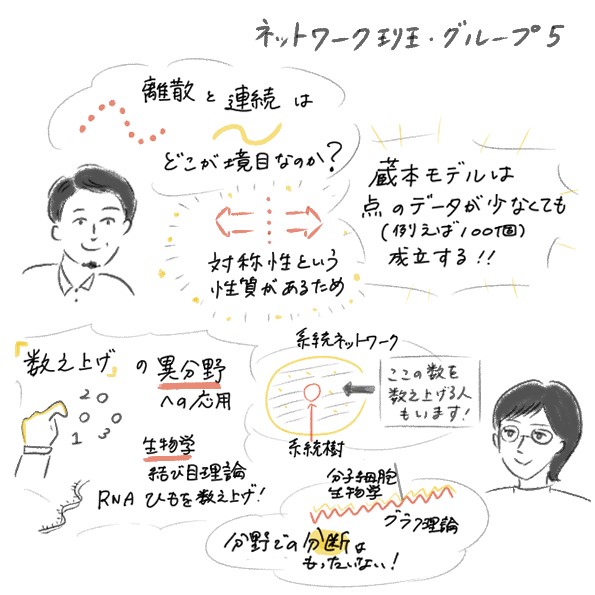 ネットワーク班・グループ5
離散と連続は
どこが境目なのか?
対称性という
性質があるため
蔵本モデルは
点のデータが少なくても
(例えば100個)
成立する!!
「数え上げ」の異分野
への応用
2
1 3
生物学
結び目理論
RNAひもを数え上げ!
系統ネットワーク
系統樹
ここの数を
数え上げる人
もいます!
分子細胞
生物学
グラフ理論
分野での分断は
もったいない!